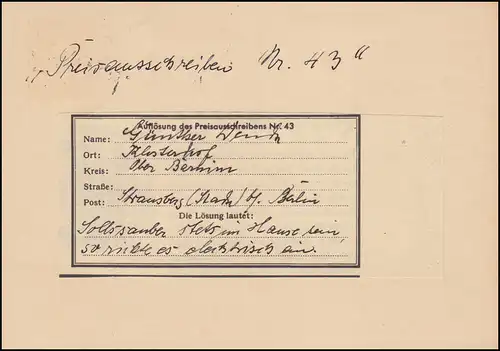 „Preisausschreiben Nr. 43“
Auflösung des Preisausschreibens Nr. 43
Name: Günther
Ort: Klosterhof
Kreis: Ober Barnim
Straße:
Post: Strausberg (Stadt) b/. Berlin
Die Lösung lautet:
Soll's sauber stets im Hause sein,
so richte es elektrisch ein.